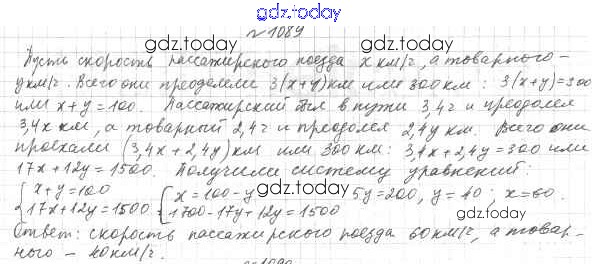 gdz.today
№1089
gdz.today gdz.today
Пусть скорость пассажирского поезда x км/ч, а товарного –
y км/ч. Всего они преодолели 3(x+y) км или 300 км: 3(x+y)=300
или x+y=100. Пассажирский был в пути 3,4 ч и преодолел
3,4x км, а товарный 2,4 ч и преодолел 2,4y км. Всего они
проехали (3,4x+2,4y) км или 300 км: 3,4x+2,4y=300 или
17x+12y=1500. Получили систему уравнений:
{x+y=100 {x=100-y 5y=200, y=40; x=60.
{17x+12y=1500 {1700-17y+12y=1500
gdz.today gdz.today
Ответ: скорость пассажирского поезда 60 км/ч, а товар-
ного – 40 км/ч.